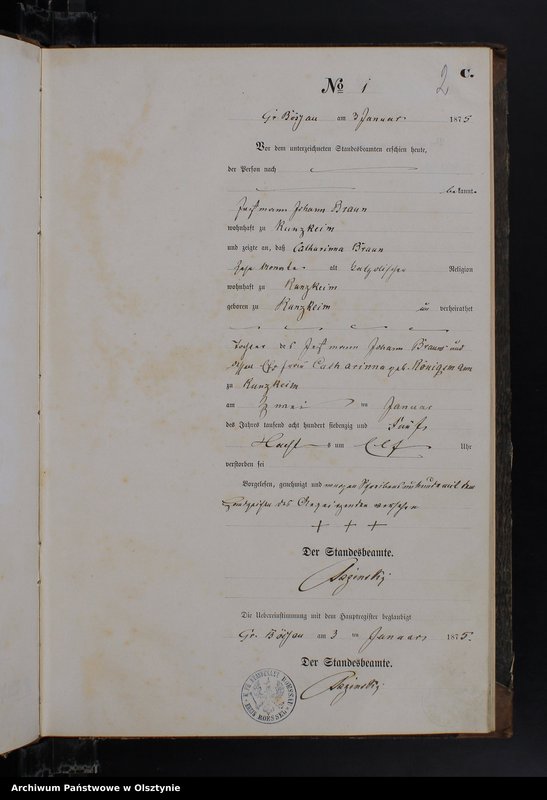 2
C.
No 1
Gr. Bößau am 3 Januar 1875
Vor dem unterzeichneten Standesbeamten erschien heute,
der Person nach
bekannt
Johann Braun
wohnhaft zu Kunzkeim
und zeigte an, daß Catharinna Braun
alt Religion
wohnhaft zu Kunzkeim
geboren zu Kunzkeim un verheirathet
Tochter des Johann Braun und
Catharinna geb. Königsmann
zu Kunzkeim
am Zwei ten Januar
des Jahres tausend acht hundert siebenzig und Fünf
Nachts um Elf Uhr
verstorben sei
Vorgelesen, genehmigt und wegen Schreibensunkunde mit dem
Handzeichen des Anzeigenden versehen
+ + +
Der Standesbeamte.
Die Uebereinstimmung mit dem Hauptregister beglaubigt
Gr. Bößau am 3 ten Januar 1875.
Der Standesbeamte.
Archiwum Państwowe w Olsztynie